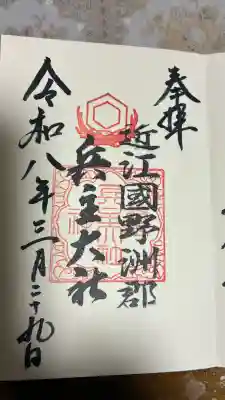 奉拝
近江國野洲郡
兵主大社
令和八年三月二十九日